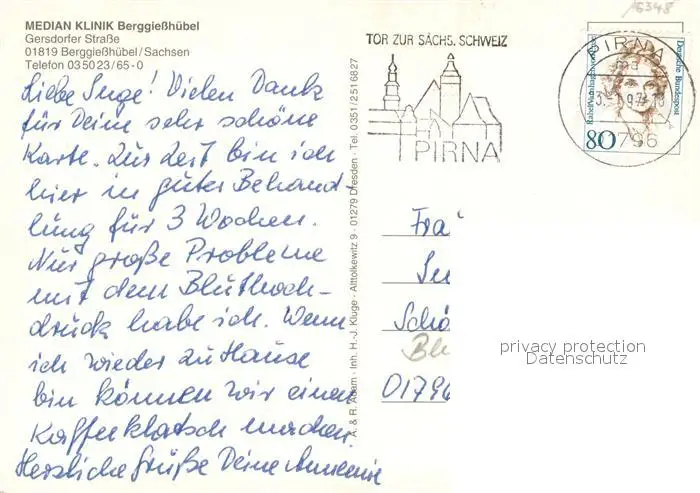 MEDIAN KLINIK Berggießhübel
Gersdorfer Straße
01819 Berggießhübel/Sachsen
Telefon 03 50 23 / 65 - 0
Liebe Senge! Vielen Dank
für Deine sehr schöne
Karte. Zur Zeit bin ich
hier in guter Behand-
lung für 3 Wochen.
Nur große Probleme
mit dem Bluthoch-
druck habe ich. Wenn
ich wieder zu Hause
bin können wir einen
Kaffeeklatsch machen.
Herzliche Grüße Deine Annemie
A. & R. Adam - Inh. H.-J. Kluge - Alttolkewitz 9 - 01279 Dresden - Tel. 0351/251 6827
TOR ZUR SÄCHS. SCHWEIZ
PIRNA
16348
PIRNA
796
Deutsche Bundespost
Rahel Varnhagen von Ense
80
Fra
Schö
01796
privacy protection
Datenschutz